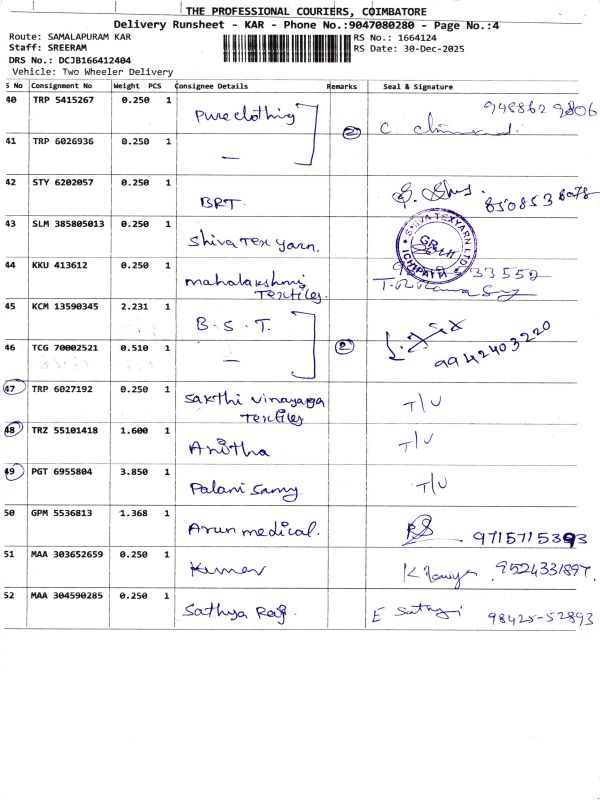 THE PROFESSIONAL COURIERS, COIMBATORE
Delivery Runsheet - KAR - Phone No.:9047080280 - Page No.:4
Route: SAMALAPURAM KAR
RS No.: 1664124
Staff: SREERAM
RS Date: 30-Dec-2025
DRS No.: DCJB166412404
Vehicle: Two Wheeler Delivery
S No Consignment No Weight PCS Consignee Details Remarks Seal & Signature
40 TRP 5415267 0.250 1 Pure clothing 2 948862 9806
41 TRP 6026936 0.250 1 —
42 STY 6202057 0.250 1 BRT 850853 8078
43 SLM 385805013 0.250 1 Shiva Tex yarn. SHIVA TEXYARN LTD
44 KKU 413612 0.250 1 mahalakshmi Textiles. 33552
45 KCM 13590345 2.231 1 B.S.T. 2 9942403220
46 TCG 70002521 0.510 1 —
47 TRP 6027192 0.250 1 Sakthi Vinayaga Textiles T/U
48 TRZ 55101418 1.600 1 Anitha T/U
49 PGT 6955804 3.850 1 Palani Samy T/U
50 GPM 5536813 1.368 1 Arun medical. RS 9715715393
51 MAA 303652659 0.250 1 Kumar 9524331897.
52 MAA 304590285 0.250 1 Sathya Raj. E 98425-52893